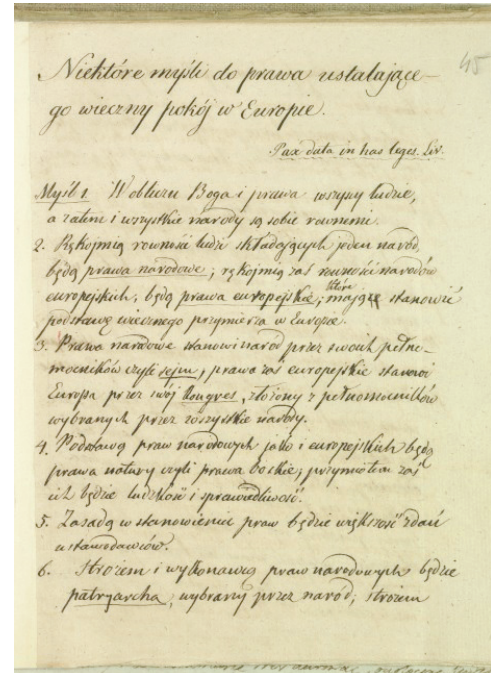 45
Niektóre myśli do prawa ustalające-
go wieczny pokój w Europie.
Pax data in has leges. Liv.
Myśl 1. W obliczu Boga i prawa wszyscy ludzie,
a zatém i wszystkie narody są sobie równemi.
2. Rękojmią równości ludzi składających jeden naród,
będą prawa narodowe; rękojmią zaś równości narodów
które
europejskich, będą prawa europejskie, mające stanowić
podstawę wiecznego przymierza w Europie.
3. Prawa narodowe stanowi naród przez swoich pełno-
mocników czyli sejm, prawa zaś europejskie stanowi
Europa przez swój Kongres, złożony z pełnomocników
wybranych przez wszystkie narody.
4. Podstawą praw narodowych jako i europejskich będą
prawa natury czyli prawa boskie; przymiotem zaś
ich będzie ludzkość i sprawiedliwość.
5. Zasadą w stanowieniu praw będzie większość zdań
ustawodawców.
6. Stróżem i wykonawcą praw narodowych będzie
patryarcha, wybrany przez naród; stróżem